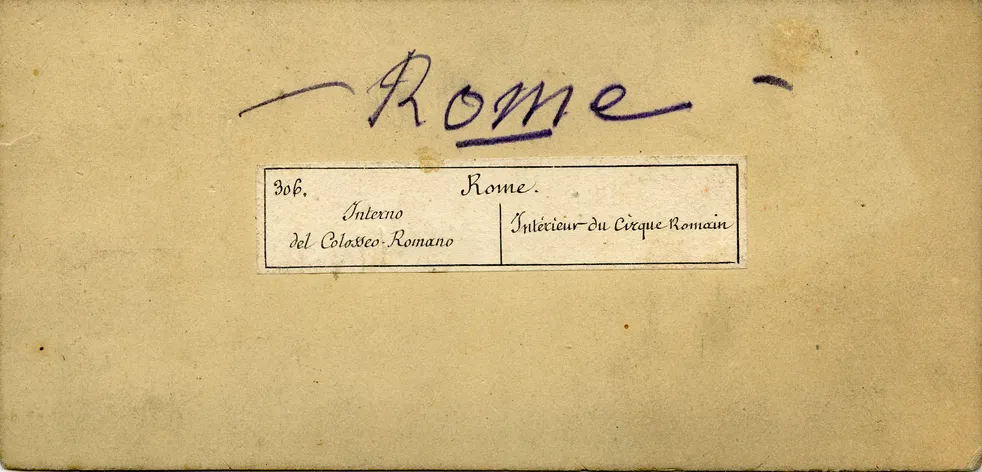 - Rome -
306. Rome.
Interno
del Colosseo-Romano
Intérieur du Cirque Romain